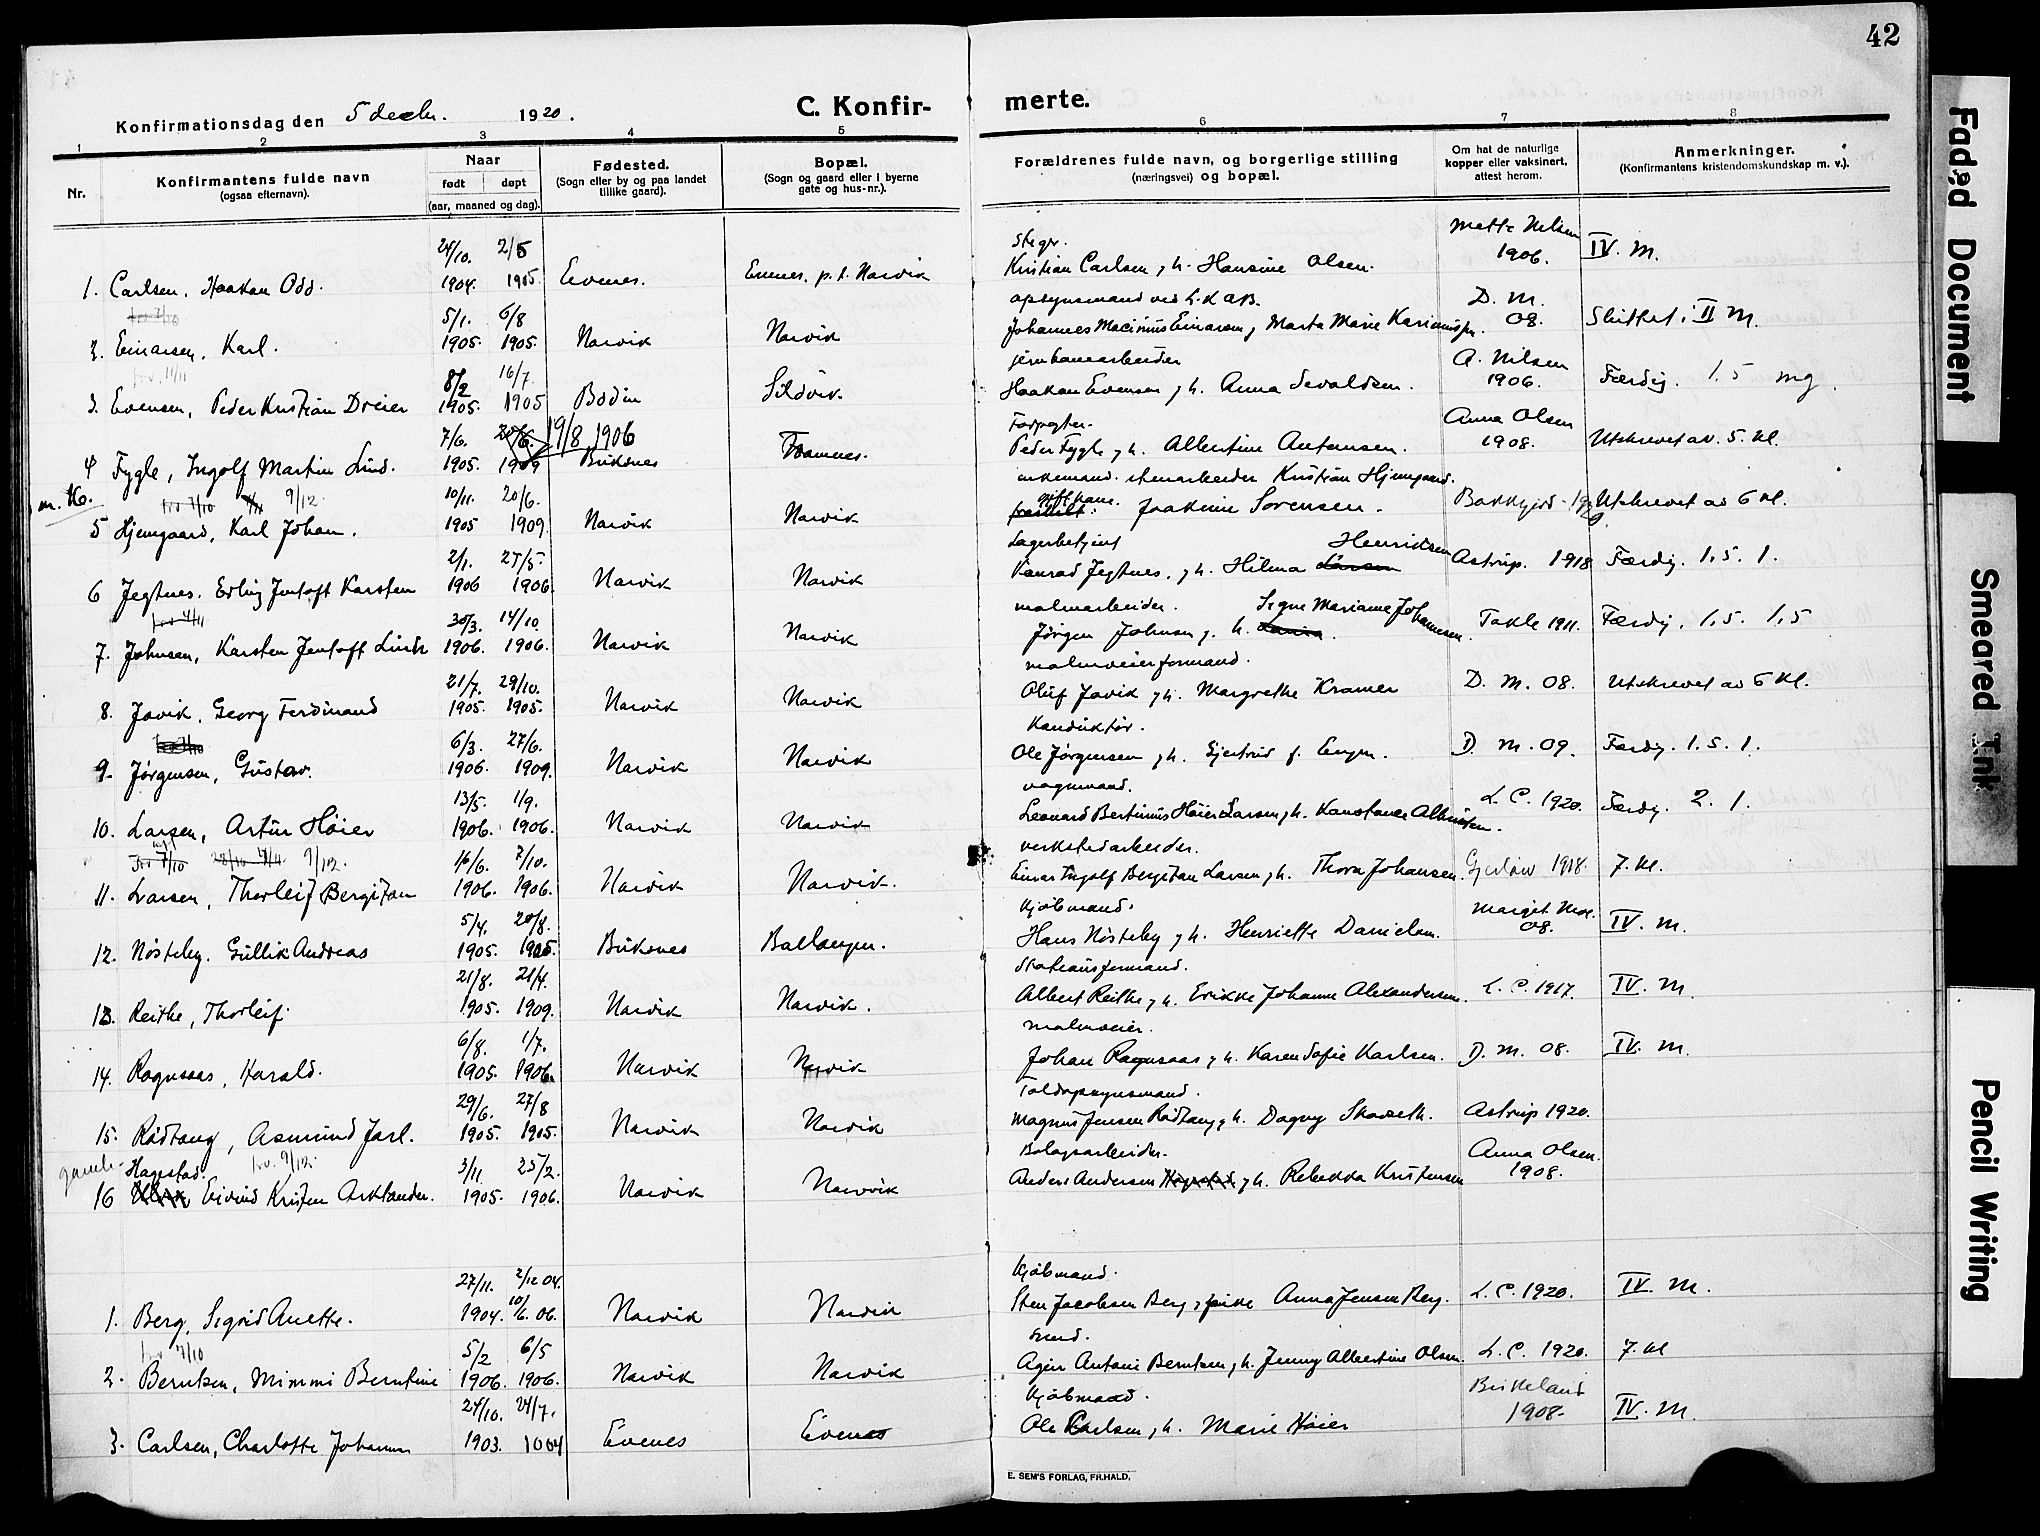 42
Konfirmationsdag den 5 decbr. 1920.
C. Konfir-
merte.
1 2 3 4 5 6 7 8
Nr.
Konfirmantens fulde navn
(ogsaa efternavn).
Naar
født døpt
(aar, maaned og dag).
Fødested.
(Sogn eller by og paa landet
tillike gaard).
Bopæl.
(Sogn og gaard eller i byerne
gate og hus-nr.).
Forældrenes fulde navn, og borgerlige stilling
(næringsvei) og bopæl.
Om hat de naturlige
kopper eller vaksinert,
attest herom.
Anmerkninger.
(Konfirmantens kristendomskundskap m. v.).
24/10. 2/5 Mette Nilsen
1. Carlsen, Haakon Odd. 1904. 1905 Evenes. Evenes. p. t. Narvik Kristian Carlsen, h. Hansine Olsen. 1906. IV. M.
5/1. 6/8 opsynsmand ved L.K.A.B. D. M.
Einarsen, Karl. 1905. 1905. Narvik Narvik 08. II M.
8/2 16/7. jernbanearbeider A. Nilsen
3. Evensen, Peder Kristian Dreier 1905. 1905 Bodin Sildvik. Haakon Evensen, h. Anna Sevaldsen. 1906. Færdig. 1.5 mg.
7/6. 19/8 1906 Forpagter. Anna Olsen
4 Fygle, Ingolf Martin Lind. 1905. 1909 Buksnes Framnes. Peder Fygle, h. Albertine Antonsen. 1908. Utskrevet av 5. kl.
9/12. 10/11. 20/6. enkemand. stenarbeider Kristian Hjemgaard.
5 Hjemgaard, Karl Johan. 1905 1909. Narvik Narvik Joakime Sørensen. Utskrevet av 6 kl.
2/1. 27/5. Lagerbetjent Henriksen
6 Jegtnes. Erling Jentoft Karsten 1906 1906. Narvik Narvik Konrad Jegtnes, h. Hilma Larsen Astrup. 1918 Færdig. 1.5. 1.
30/3. 14/10. malmarbeider. Signe Marianne Johannesen.
7. Johnsen, Karsten Jentoft 1906. 1906. Narvik Narvik Jørgen Johnsen, h. Takle 1911. Færdig. 1.5. 1,5
21/7. 29/10. malmveierformand.
8. Javik, Georg Ferdinand 1905. 1905. Narvik Narvik Oluf Javik, h. Margrethe Kramer D. M. 08. Utskrevet av 6 kl.
6/3. 27/6. Konduktør.
9. Jørgensen, Gustav. 1906. 1909. Narvik Narvik Ole Jørgensen, h. Gjertrud f. Engen. D. M. 09. Færdig. 1.5. 1.
13/5. 1/9. vognmand.
10. Larsen, Artur Høier 1906. 1906. Narvik Narvik Leonard Bertinius Høier Larsen, h. Konstance Albertsen. L. C. 1920. Færdig. 2. 1.
7/10 9/12. 16/6. 7/10. verkstedarbeider.
11. Larsen, Thorleif Bergitan 1906. 1906. Narvik Narvik. Einar Ingolf Bergitan Larsen, h. Thora Johansen. Gjerløw 1918. 7. kl.
5/4. 20/8. Kjøbmand. Margit Moe.
12. Nøsteby. Gullik Andreas 1905. 1905. Buksnes Ballangen. Hans Nøsteby, h. Henriette Danielsen. 08. IV. M.
21/8. 21/4. Stationsformand.
13. Reithe, Thorleif. 1905. 1909. Narvik Narvik. Albert Reithe, h. Erikke Johanne Alexandersen. L. C. 1917. IV. M.
6/8. 1/7. malmveier.
14. Rognsaas, Harald. 1905. 1906. Narvik Narvik Johan Rognsaas, h. Karen Sofie Karlsen. D. M. 08. IV. M.
29/6. 27/8 Toldopsynsmand.
15. Rødtang, Asmund Jarl. 1905. 1905. Narvik Narvik Magnus Jensen Rødtang, h. Dagny Skarseth. Astrup 1920.
Hagestad. 9/12. 3/11 25/2. Bolagsarbeider. Anna Olsen.
16 Eivind Kristen Arktander. 1905. 1906. Narvik Narvik Anders Andersen Hagestad, h. Rebekka Kristensen 1908.
27/11. 2/12 04. Kjøbmand.
1. Berg, Sigrid Anette. 1904. 10/6. 06. Narvik Narvik Sten Jacobsen Berg, frue Anna Jensen Berg. L. C. 1920. IV. M.
7/10 5/2 6/5 smed.
2. Berntsen, Mimmi Berntine 1906. 1906. Narvik Narvik Antoni Berntsen, h. Jenny Albertine Olsen. L. C. 1920. 7. kl
24/10. 24/7. Kjøbmand. Birkeland
3. Carlsen, Charlotte Johanne 1903. 1904 Evenes Evenes Ole Carlsen, h. Marie Høier 1908. IV. M.
E. SEM'S FORLAG, FR.HALD.
Faded Document
Smeared Ink
Pencil Writing